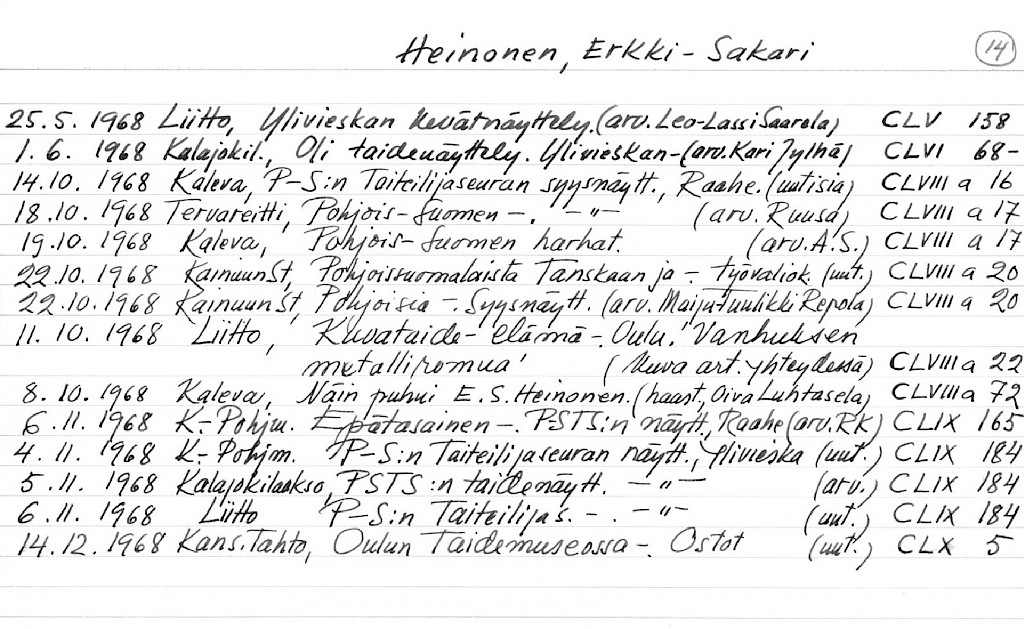 Heinonen, Erkki-Sakari 14
25.5.1968 Liitto, Ylivieskan kevätnäyttely. (arv. Leo-Lassi Saarela) CLV 158
1.6.1968 Kalajokil., Oli taidenäyttely. Ylivieskan- (arv. Kari Jylhä) CLVI 68-
14.10.1968 Kaleva, P-S:n Taiteilijaseuran syysnäytt., Raahe. (uutisia) CLVIII a 16
18.10.1968 Tervareitti, Pohjois-Suomen -. -"- (arv. Ruusa) CLVIII a 17
19.10.1968 Kaleva, Pohjois-Suomen harhat. (arv. A.S.) CLVIII a 17
22.10.1968 KainuunSt, Pohjoissuomalaista Tanskaan ja - työvaliok. (uut.) CLVIII a 20
22.10.1968 KainuunSt, Pohjoisia -. Syysnäytt. (arv. Maiju-Tuulikki Repola) CLVIII a 20
11.10.1968 Liitto, Kuvataide-elämä -. Oulu. 'Vanhuksen
metalliromua' (kuva art. yhteydessä) CLVIII a 22
8.10.1968 Kaleva, Näin puhui E.S. Heinonen. (haast. Oiva Luhtasela) CLVIII a 72
6.11.1968 K.-Pohjm. Epätasainen -. PSTS:n näytt., Raahe (arv. RK) CLIX 165
4.11.1968 K.-Pohjm. P-S:n Taiteilijaseuran näytt., Ylivieska (uut.) CLIX 184
5.11.1968 Kalajokilaakso, PSTS:n taidenäytt. -"- (arv.) CLIX 184
6.11.1968 Liitto P-S:n Taiteilijas. -. -"- (uut.) CLIX 184
14.12.1968 Kans.Tahto, Oulun Taidemuseossa -. Ostot (uut.) CLX 5